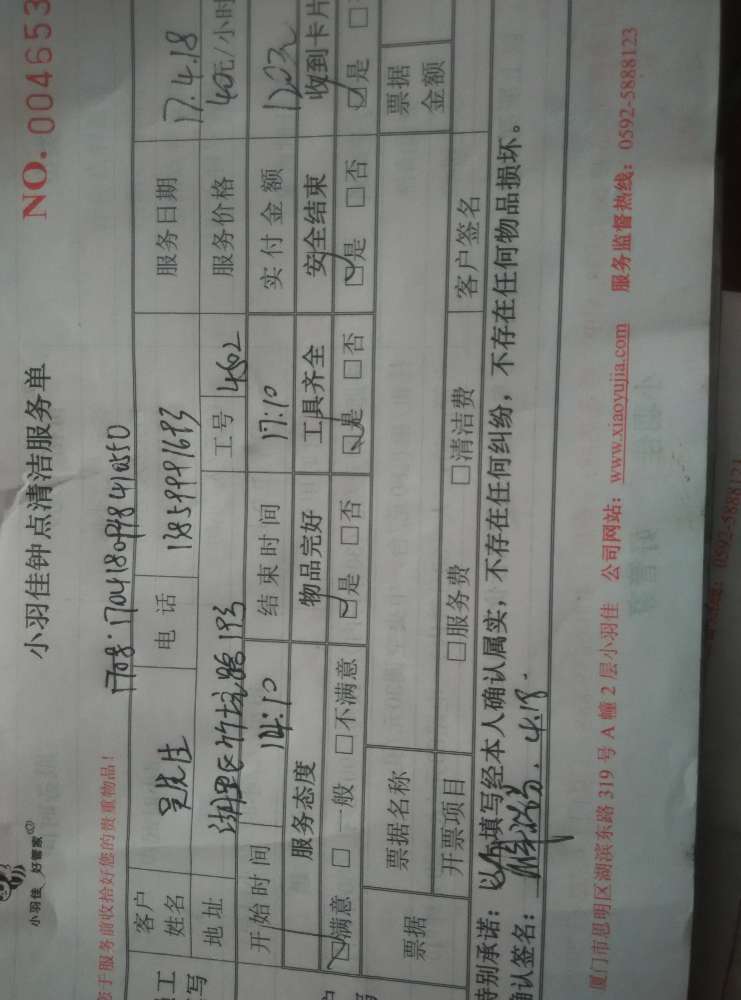 小羽佳 好管家
小羽佳钟点清洁服务单
NO. 004653
于服务前收拾好您的贵重物品!
客户姓名 吴先生 电话 服务日期 17.4.18
地址 工号 4502 服务价格 40元/小时
开始时间 14:10 结束时间 17:10 实付金额 120元
服务态度 物品完好 工具齐全 安全结束 收到卡片
☑满意 □一般 □不满意 ☑是 □否 ☑是 □否 ☑是 □否 ☑是 □
票据 票据名称 票据金额
开票项目 □服务费 □清洁费 客户签名
特别承诺:以上填写经本人确认属实,不存在任何纠纷,不存在任何物品损坏。
确认签名: 4.18.
厦门市思明区湖滨东路 319 号 A 幢 2 层小羽佳 公司网站:www.xiaoyujia.com 服务监督热线:0592-5888123
0592-5888123